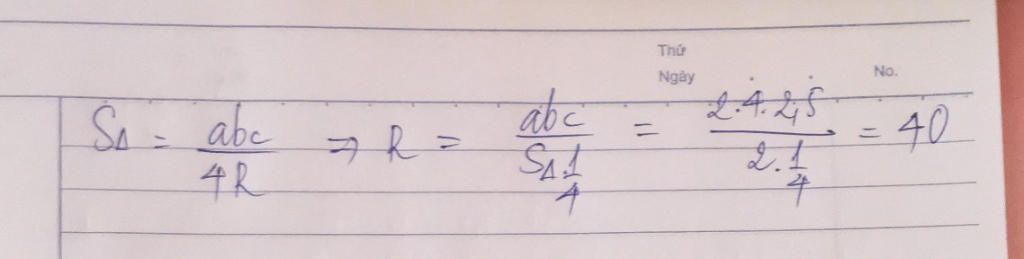 Thứ
Ngày No.
S△ = abc/4R ⇒ R = abc/(S△.1/4) = 2.4.2,5/(2.1/4) = 40